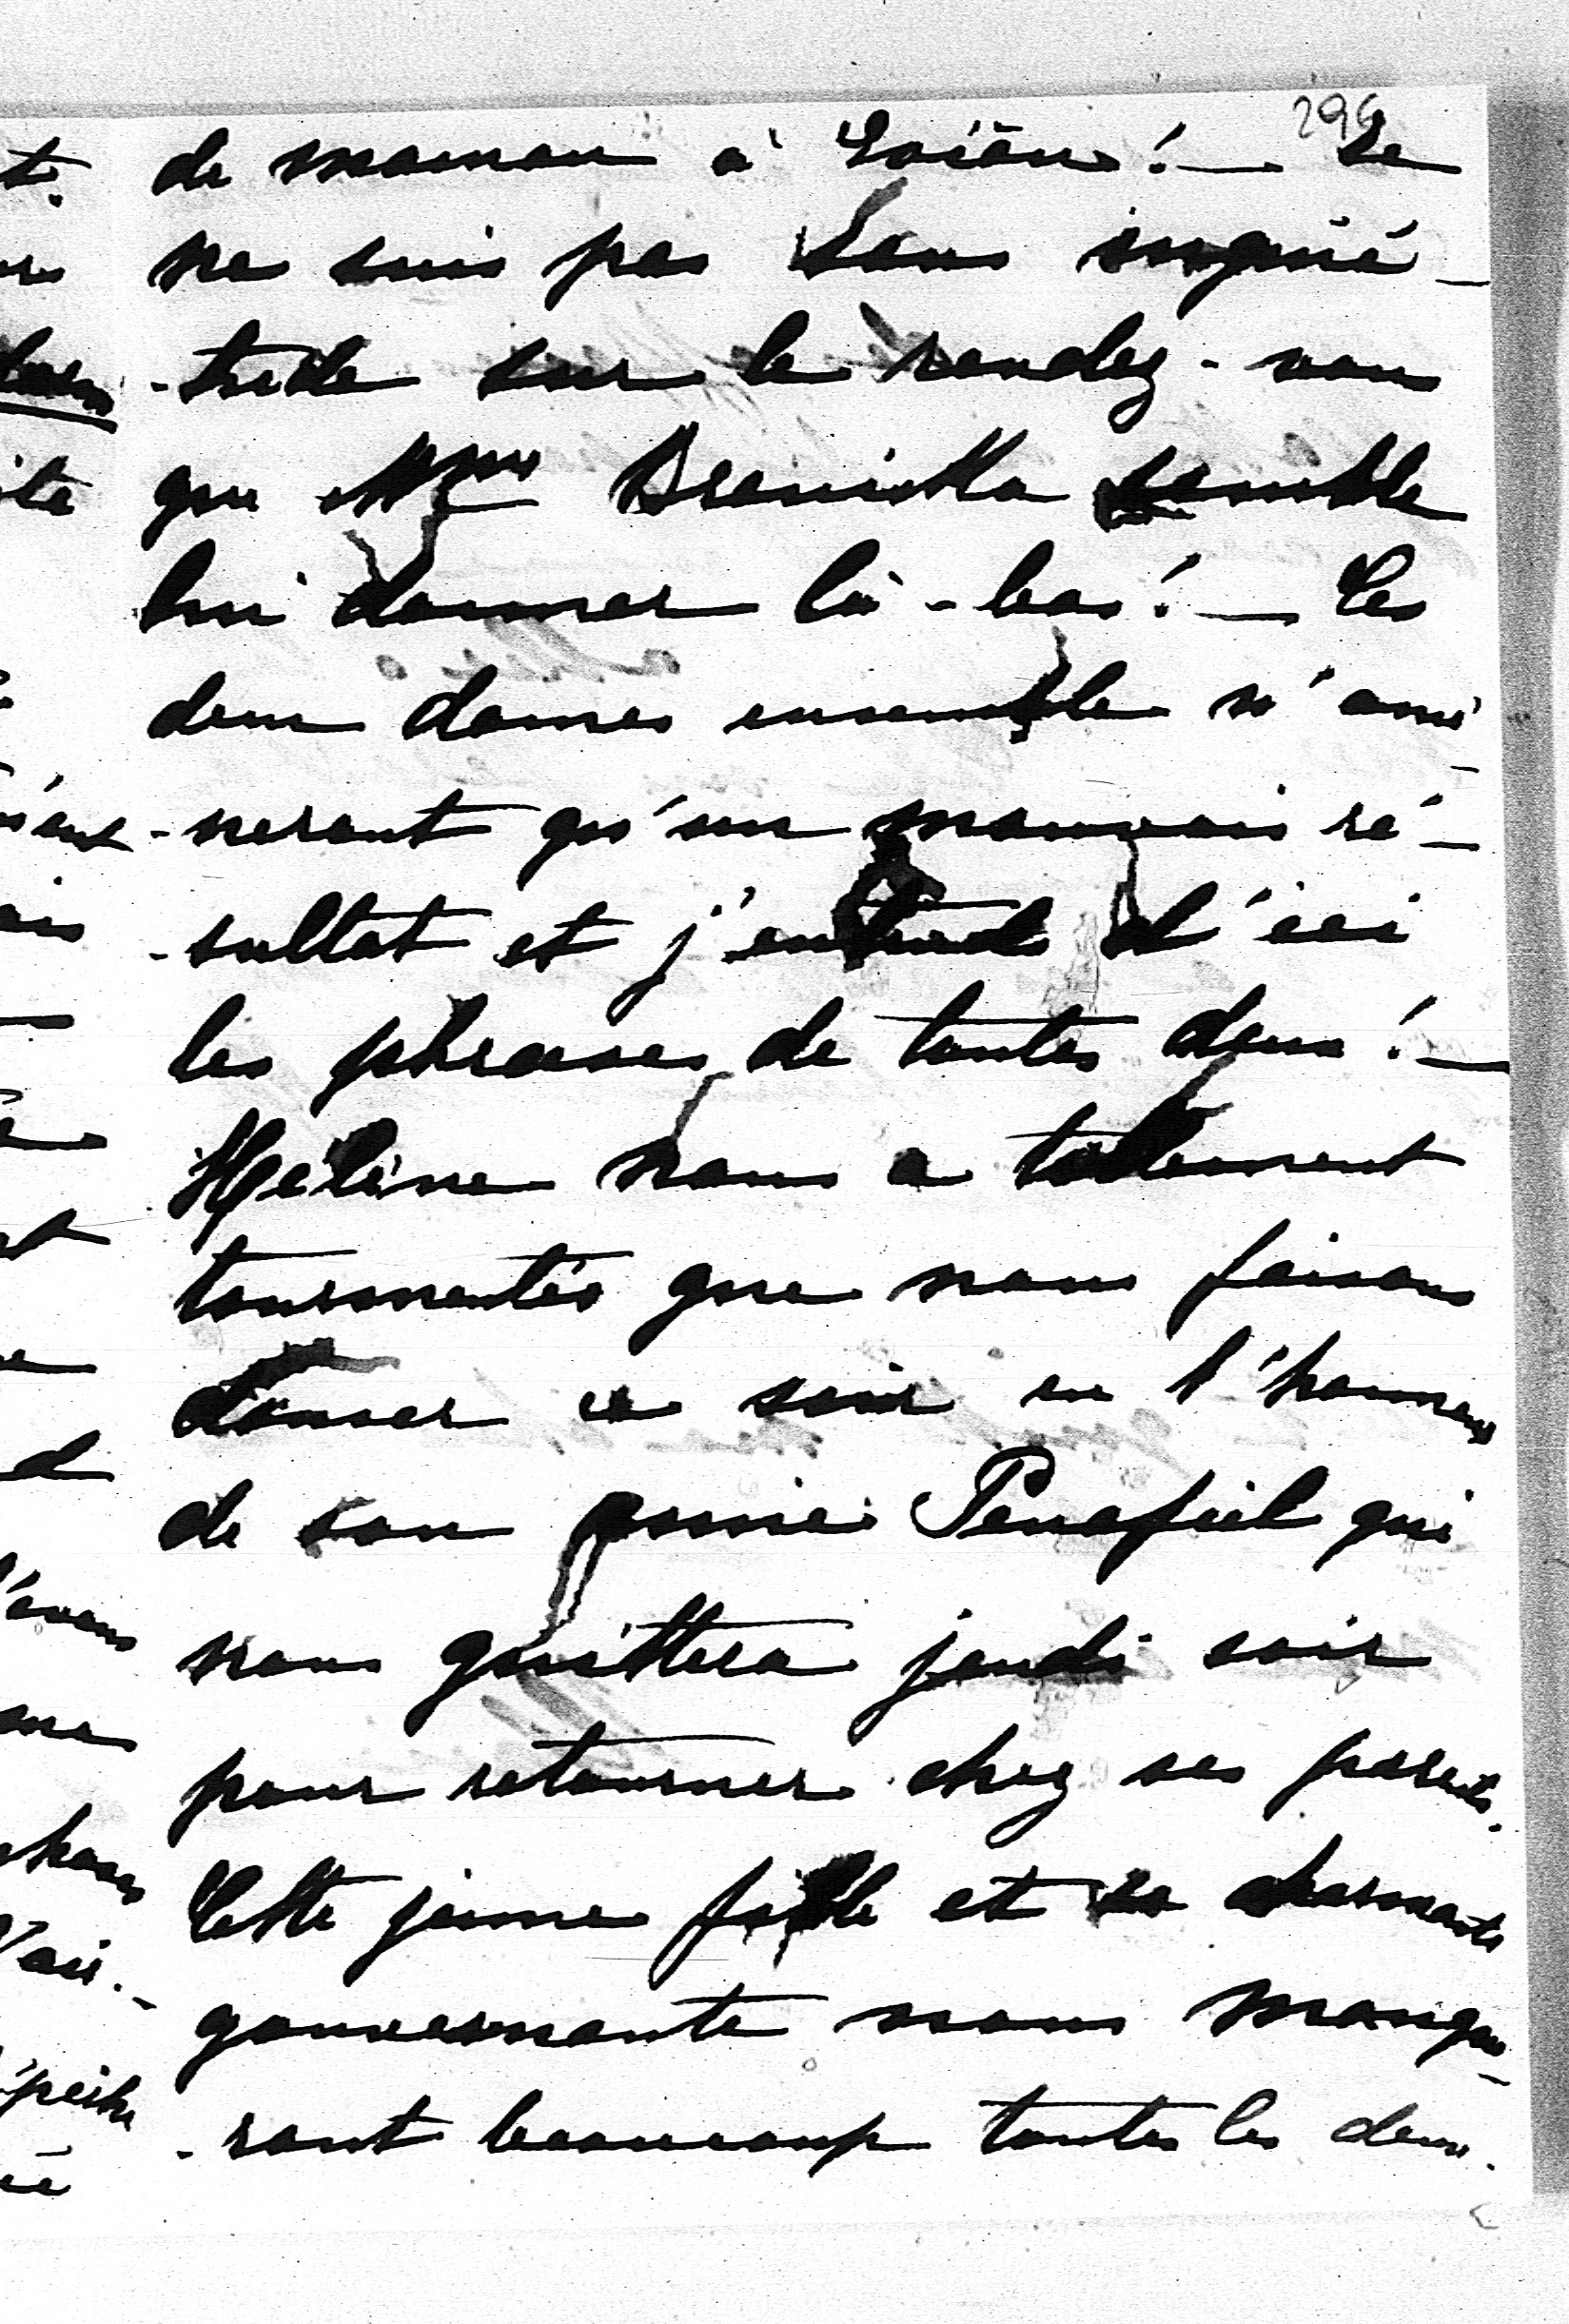 296
de maman à Evian! — Je
ne suis pas sans inquié-
-tude sur le rendez-vous
que Mme semble
lui donner là-bas! — Ces
deux dames ensemble n'amè-
-neront qu'un mauvais ré-
-sultat et j'entends d'ici
les phrases de toutes deux! —
Hélène nous a tellement
tourmentés que nous faisons
danser ce soir en l'honneur
de son amie Penafiel qui
nous quittera jeudi soir
pour retourner chez ses parents.
Cette jeune fille et sa charmante
gouvernante nous manque-
-ront beaucoup toutes les deux.